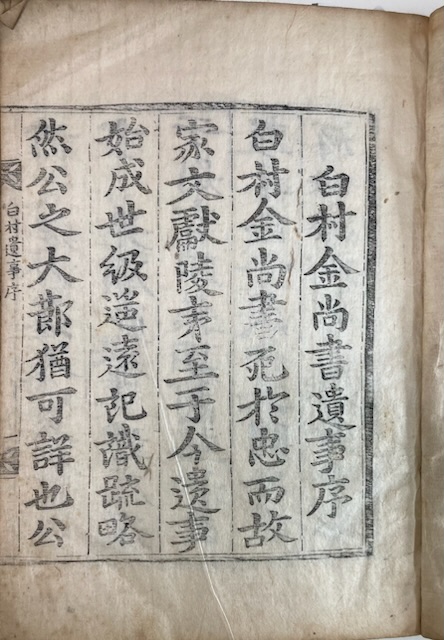 白村金尚書遺事序
白村金尚書死扵忠而故
家文獻陵夷至于今遺事
始成世級遠記識疏略
然公之大莭猶可詳也公
白村遺事序
一